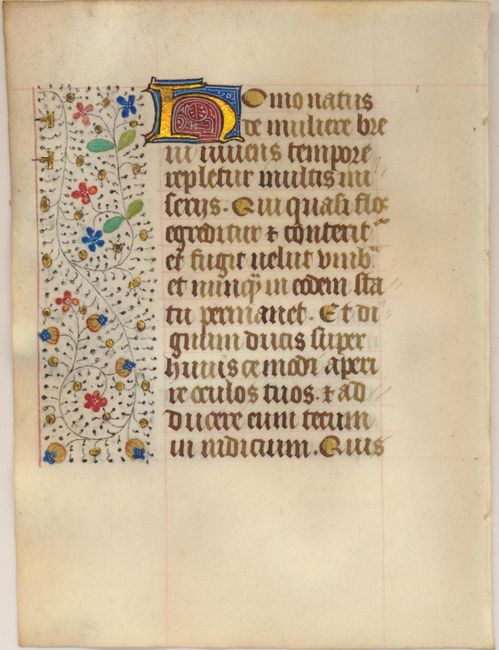 Homo natus
de muliere bre
vi vivens tempore
repletur multis mi
seriis. Qui quasi flos
egreditur & conterit᷑
et fugit velut umbra
et nunq̃ in eodem sta
tu permanet. Et di
gnum ducis super
huiuscemodi aperi
re oculos tuos. & ad
ducere eum tecum
in iudicium. Quis